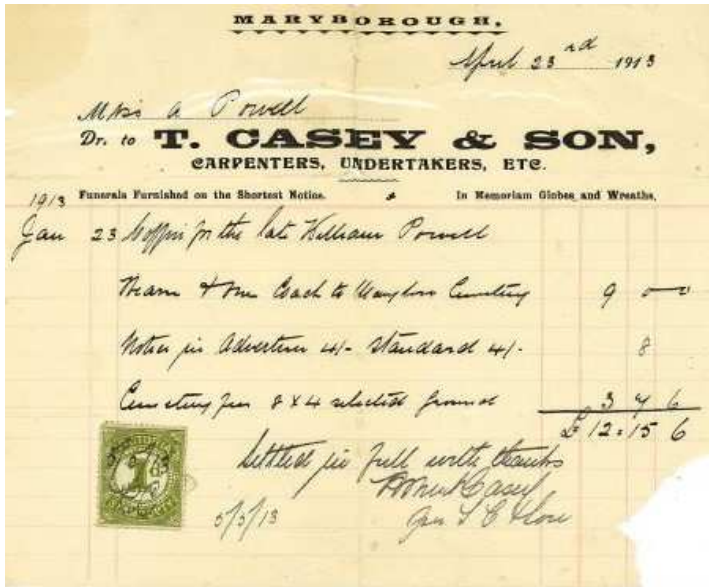 MARYBOROUGH,
April 23rd 1913
Miss A Powell
Dr. to T. CASEY & SON,
CARPENTERS, UNDERTAKERS, ETC.
Funerals Furnished on the Shortest Notice. In Memoriam Globes and Wreaths.
1913
Jan 23 Coffin for the late William Powell
Hearse & one Coach to Maryboro Cemetery 9 0 0
Notice in Advertiser 4/- Standard 4/- 8
Cemetery fee 8 x 4 selected ground 3 7 6
£12=15 6
Settled in full with thanks
Casey
5/5/13